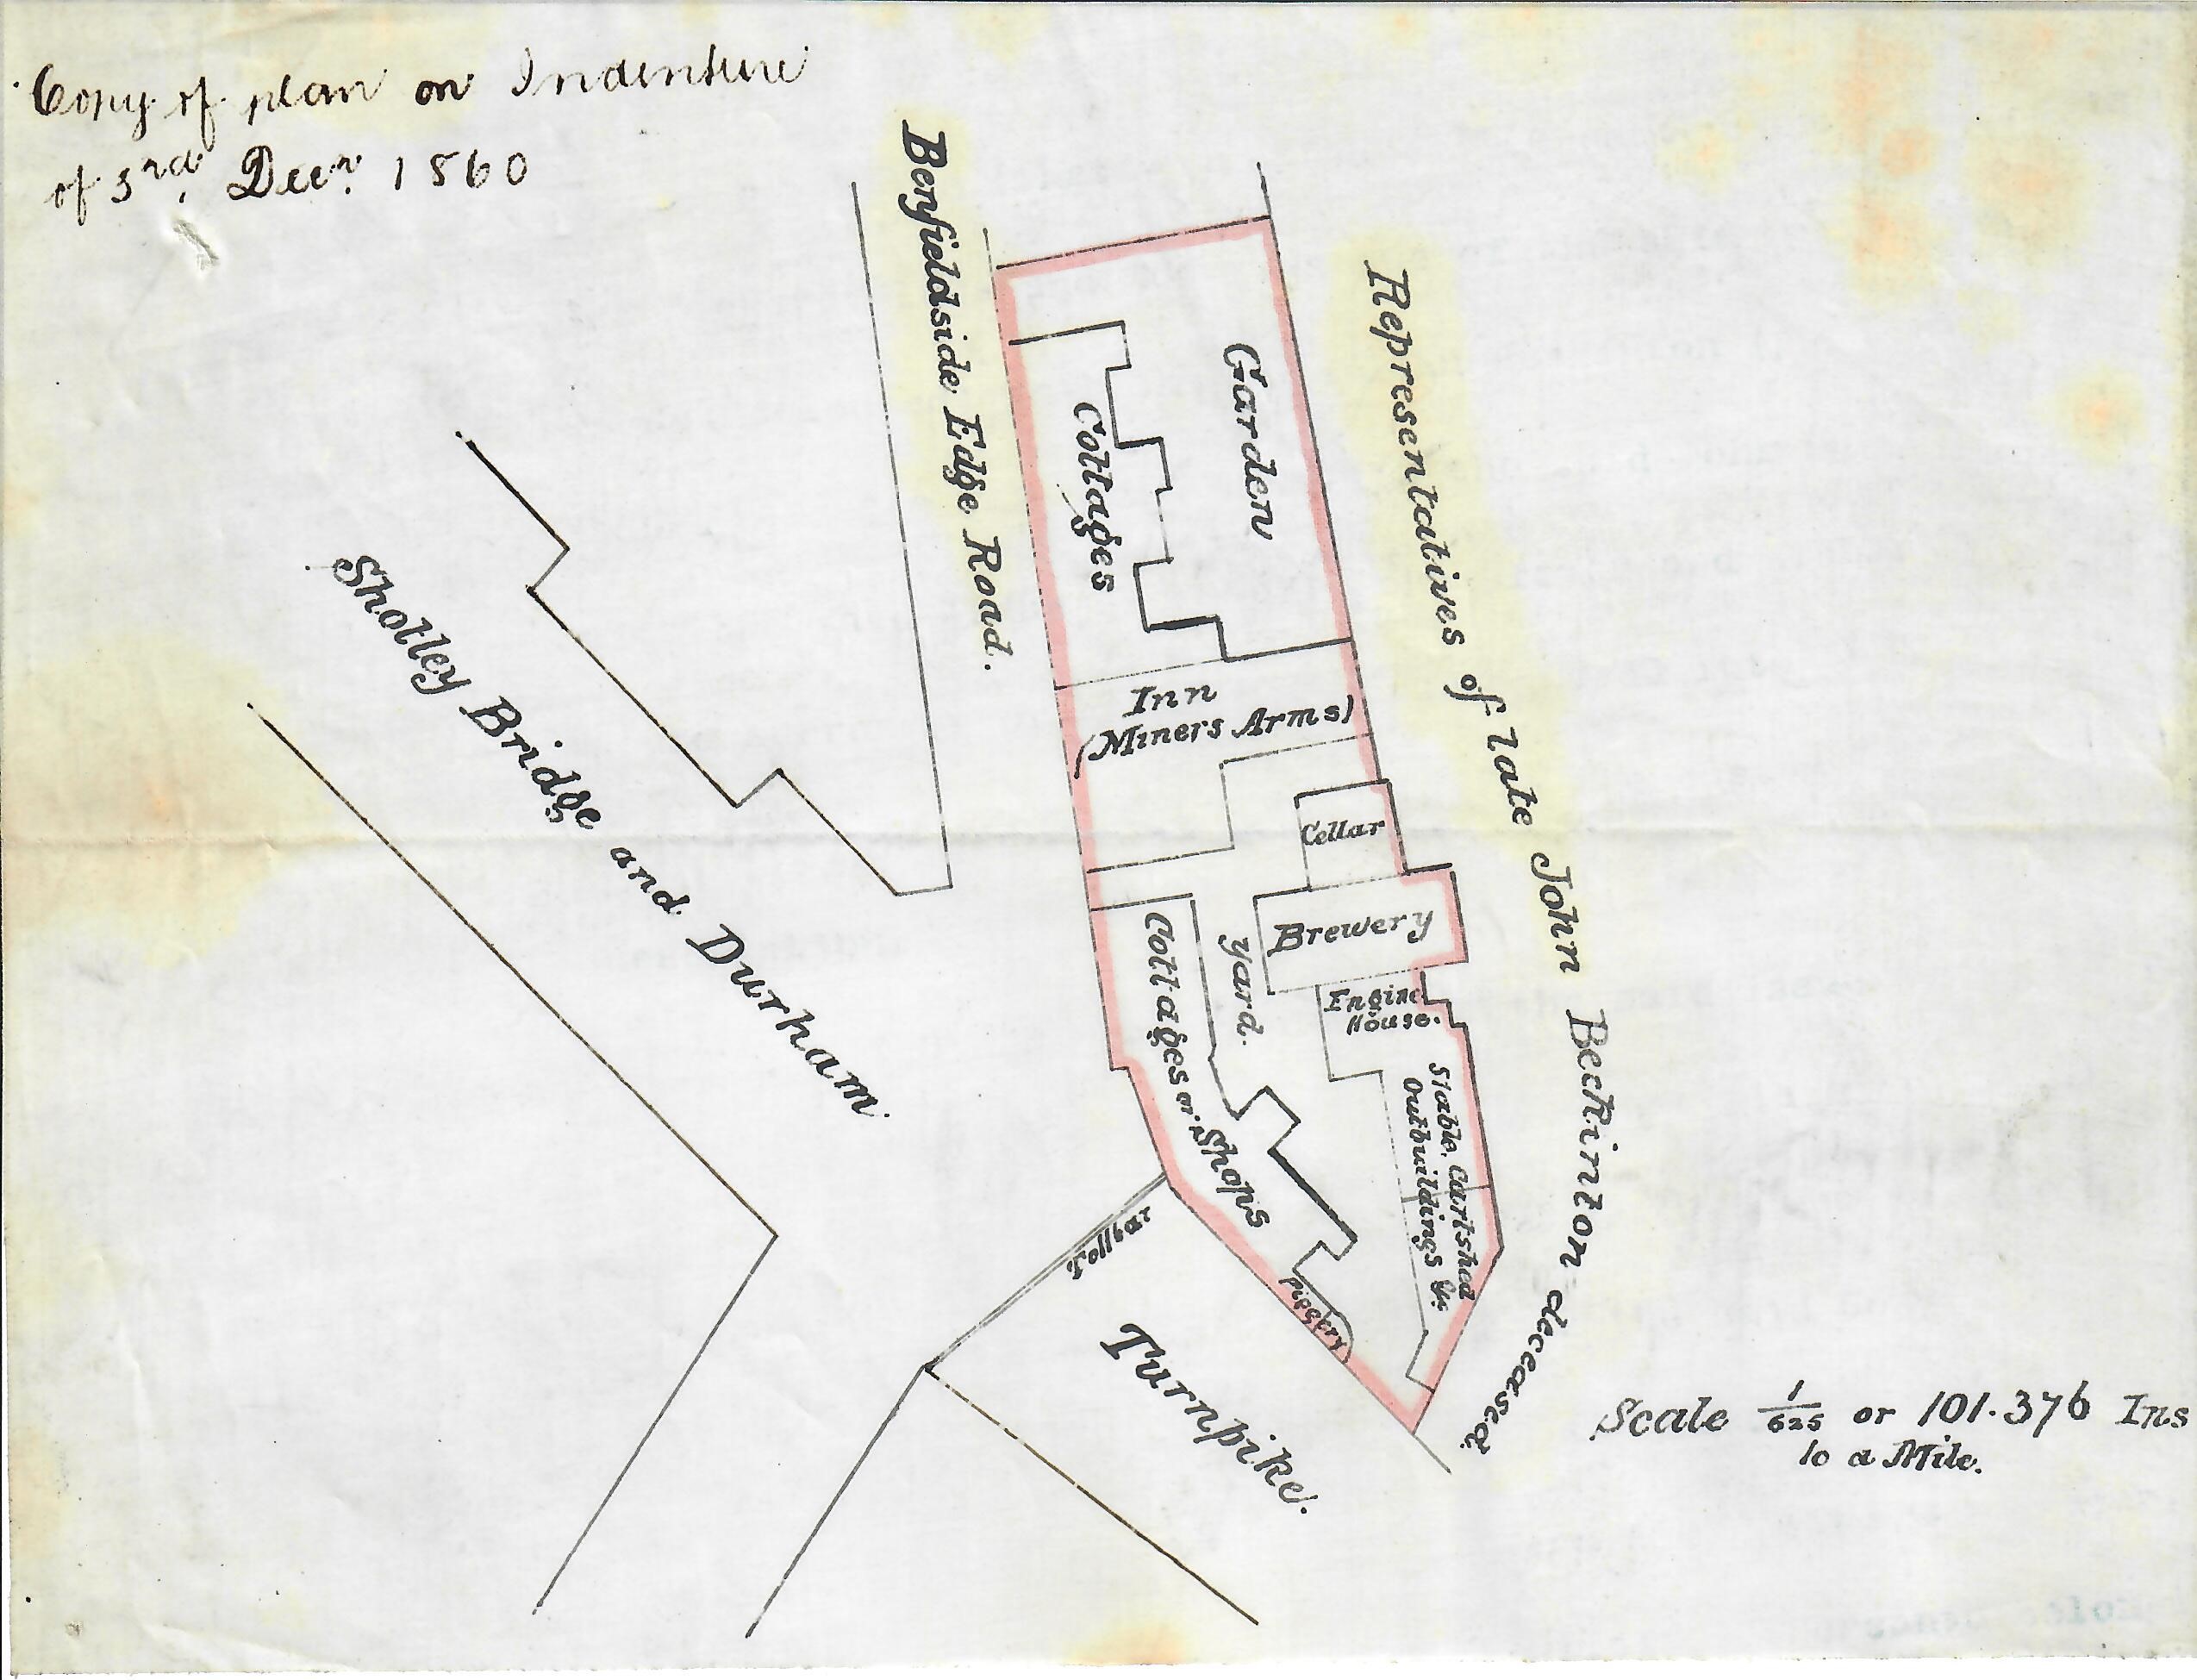 Copy of plan on Indenture
of 3rd. Decr. 1860
Benfieldside Edge Road.
Representatives of late John Beckinton deceased
Garden
Cottages
Inn
(Miners Arms)
Cellar
Brewery
Yard.
Engine
House.
Cottages or Shops
Stable, Cartshed
Outbuildings &c
Piggery
Tollbar
Shotley Bridge and Durham
Turnpike.
Scale 1/625 or 101.376 Ins
to a Mile.